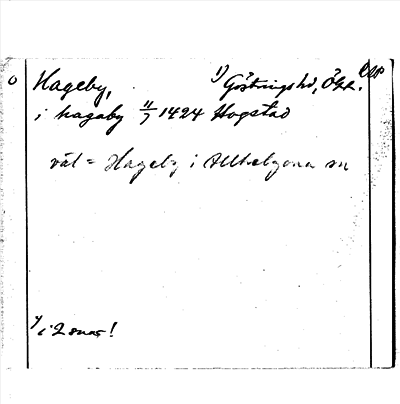 Hageby, 1) Göstrings hd, Ögl.
i hagaby 11/7 1424 Hogstad
väl = Hageby i Allhelgona sn
1) i 2 snar!